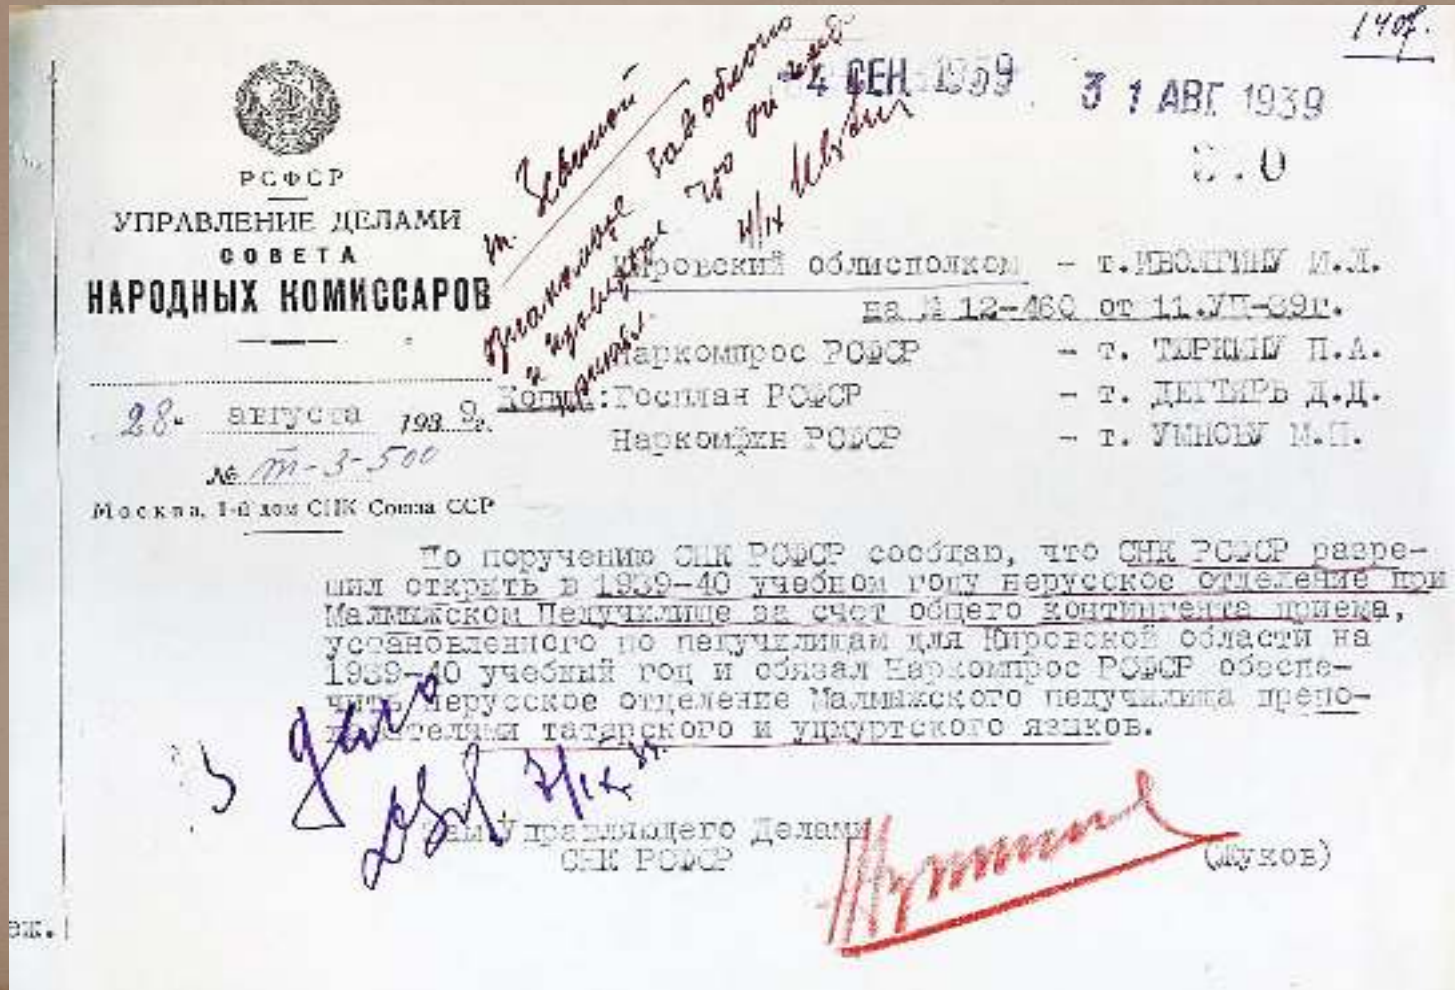 140
4 СЕН 1939
31 АВГ 1939
РСФСР
УПРАВЛЕНИЕ ДЕЛАМИ
СОВЕТА
НАРОДНЫХ КОМИССАРОВ
28 августа 1939 г.
№ т-3-500
Москва, 1-й дом СНК Союза ССР
т.
4/IX
Кировский облисполком - т. ИВОЛГИНУ М.Л.
на № 12-460 от 11.УП-39г.
Наркомпрос РСФСР - т. ТЮРКИНУ П.А.
Копии: Госплан РСФСР - т. ДЕГТЯРЬ Д.Д.
Наркомфин РСФСР - т. УМНОВУ М.П.
По поручению СНК РСФСР сообщаю, что СНК РСФСР разре-
шил открыть в 1939-40 учебном году нерусское отделение при
Малмыжском Педучилище за счет общего контингента приема,
установленного по педучилищам для Кировской области на
1939-40 учебный год и обязал Наркомпрос РСФСР обеспе-
чить нерусское отделение Малмыжского педучилища препо-
давателями татарского и удмуртского языков.
В дело
7/IX
Зам Управляющего Делами
СНК РСФСР
(Жуков)
еж.